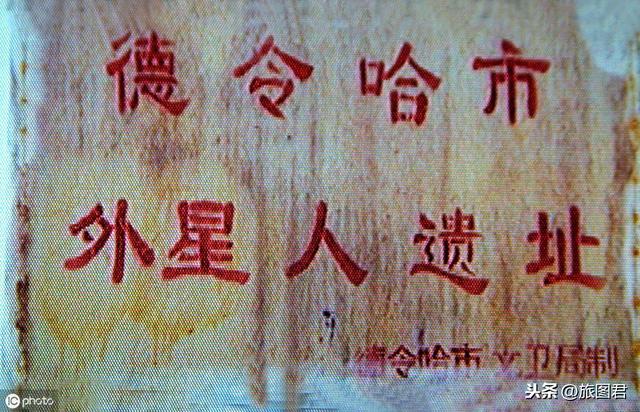 德令哈市
外星人遗址
德令哈市文卫局制
iC photo
头条 @旅图君